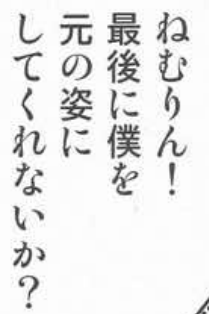 ねむりん！
最後に僕を
元の姿に
してくれないか？